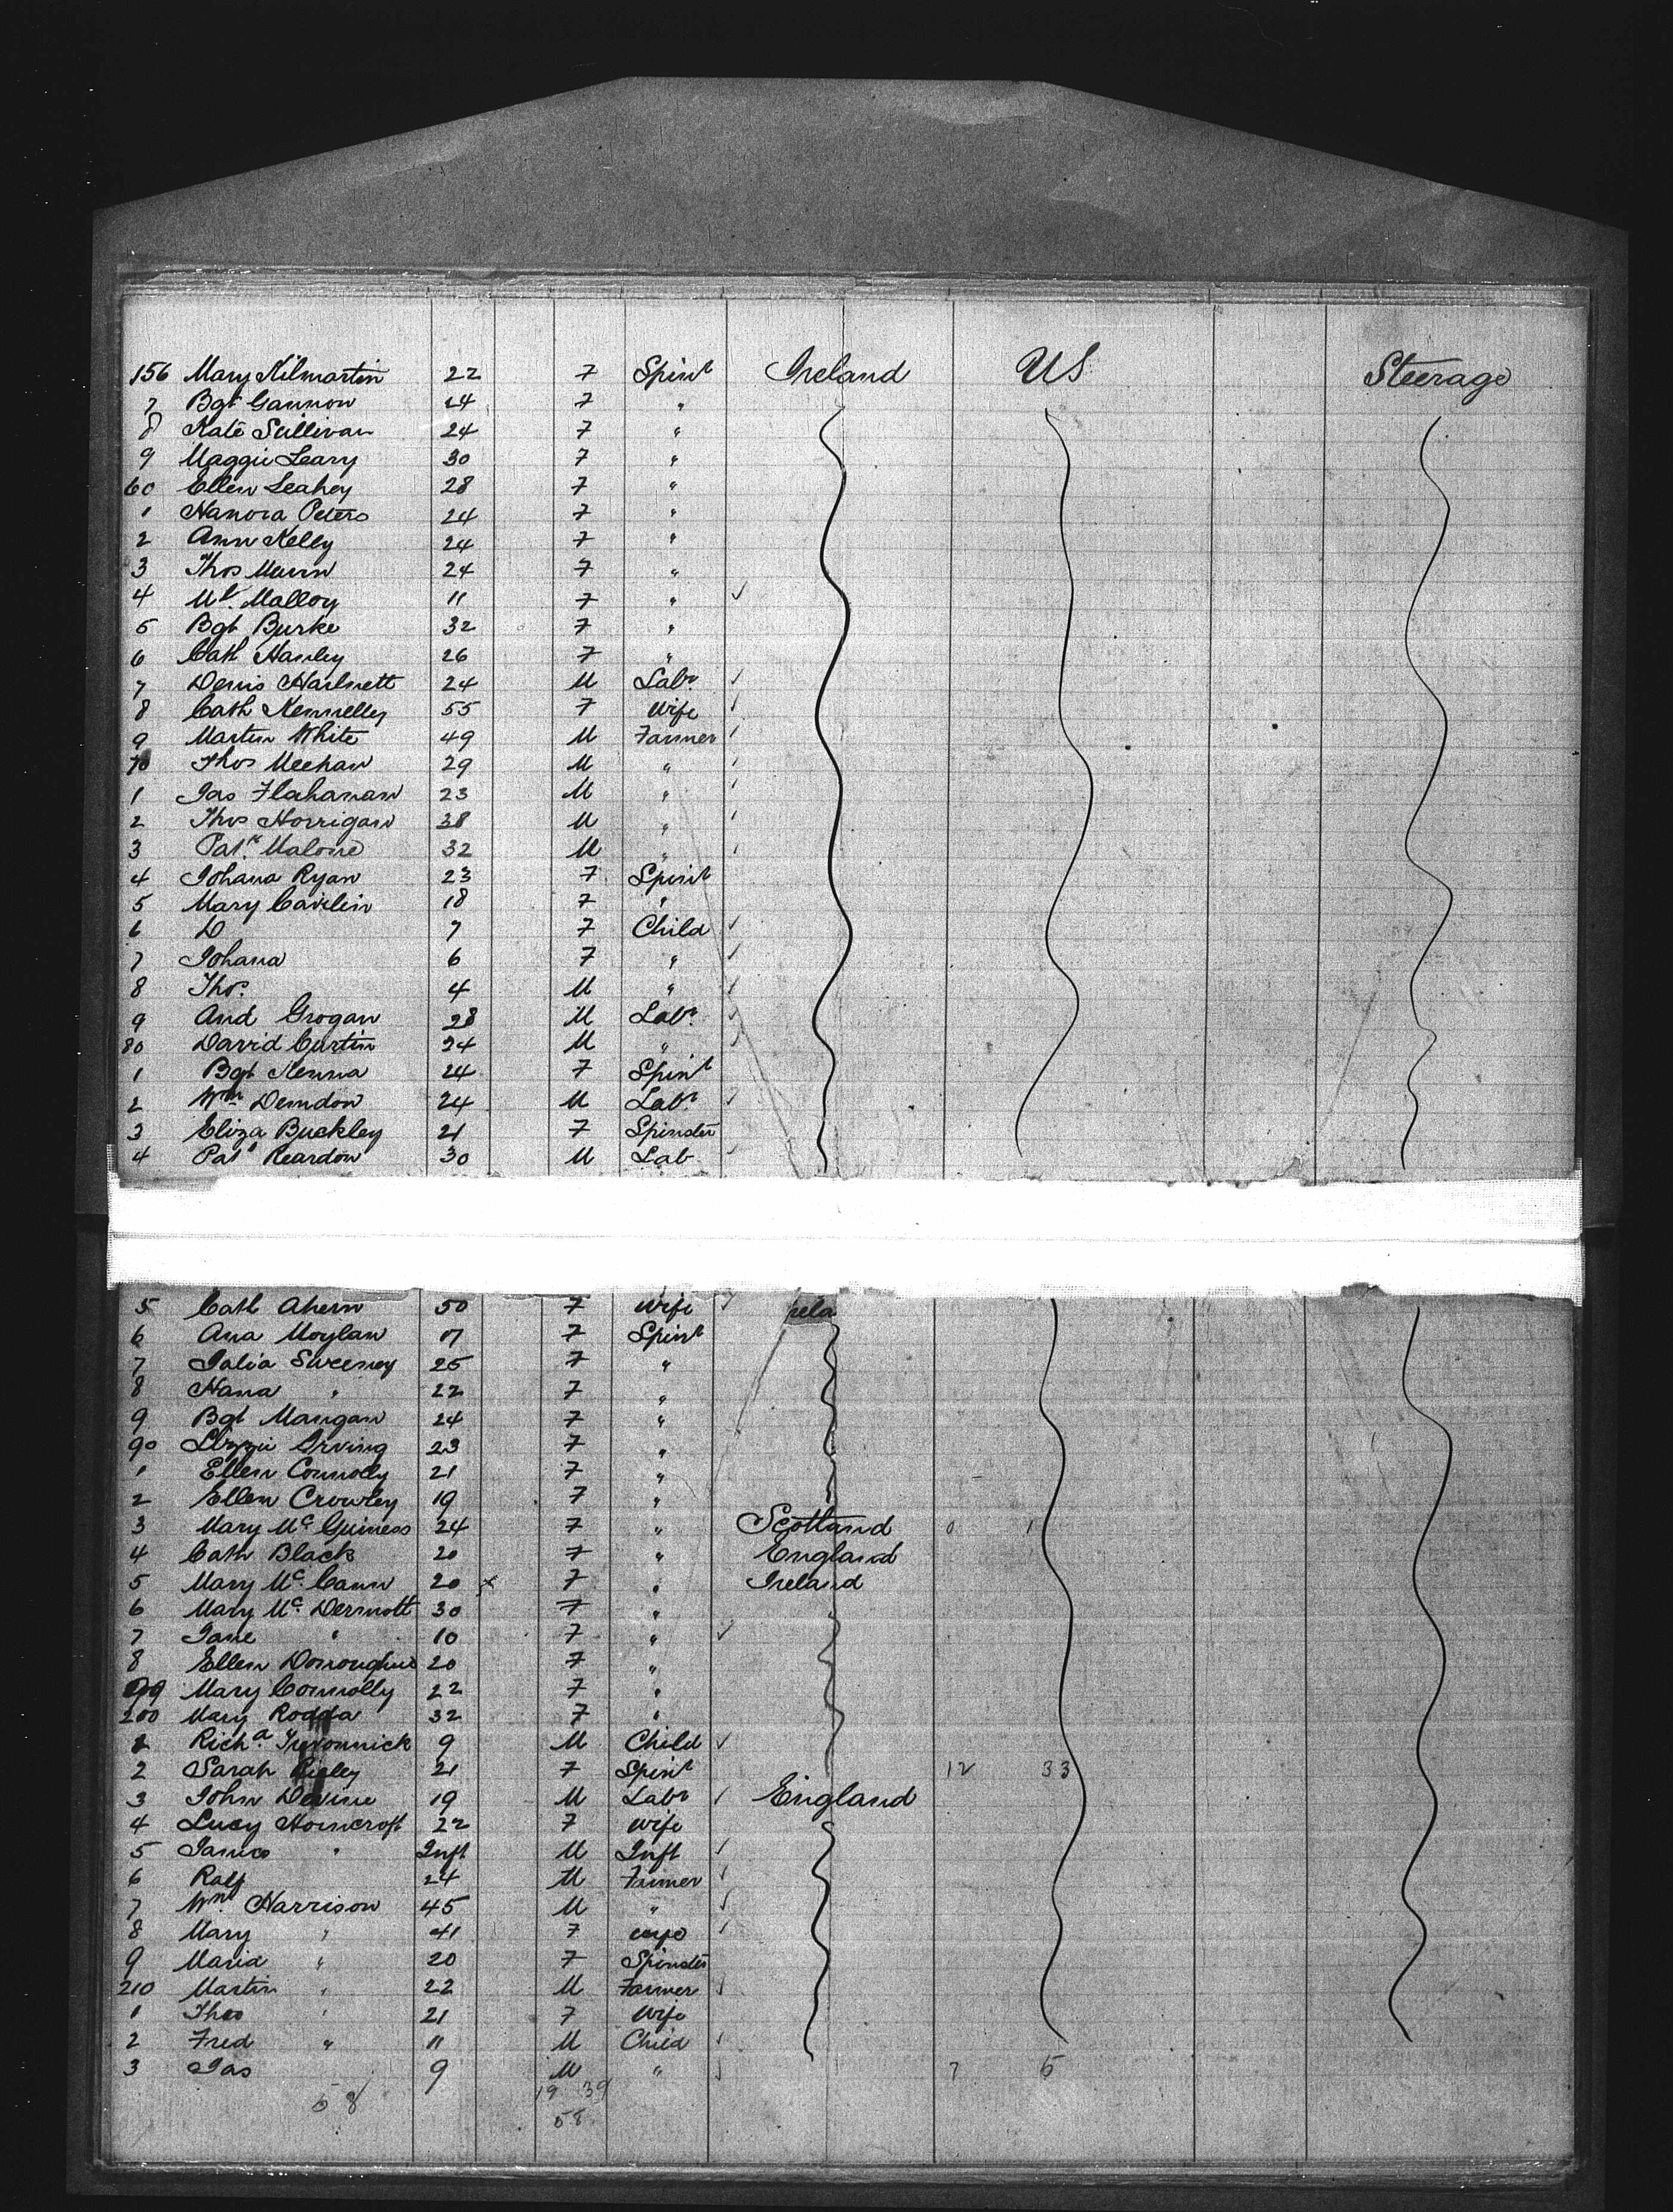 156 Mary Kilmartin 22 F Spinst Ireland US Steerage
7 Bgt Gannon 24 F "
8 Kate Sullivan 24 F "
9 Maggie Leary 30 F "
60 Ellen Leahey 28 F "
1 Hanora Peters 24 F "
2 Ann Kelly 24 F "
3 Thos 24 F "
4 Malloy 11 F " ✓
5 Bgt Burke 32 F "
6 Cath Hanley 26 F "
7 Denis Hartnett 24 M Labr ✓
8 Cath Kennelley 55 F Wife
9 Martin White 49 M Farmer
70 Thos Meehan 29 M "
1 Jas Flahanan 23 M "
2 Thos Horrigan 38 M "
3 Patk Malone 32 M "
4 Johana Ryan 23 F Spinst
5 Mary 18 F "
6 D 7 F Child ✓
7 Johana 6 F " ✓
8 Thos. 4 M "
9 And Grogan 28 M Labr.
80 David Curtin 24 M "
1 Bgt Kenna 24 F Spinst
2 Wm Demdon 24 M Labr
3 Eliza Buckley 21 F Spinster
4 Patk Reardon 30 M Lab
5 Cath Ahern 50 F Wife ✓ rela
6 Ana Moylan 17 F Spinst
7 Julia Sweeney 25 F "
8 Hana " 22 F "
9 Bgt Mangan 24 F "
90 Lizzie Irving 23 F "
1 Ellen Connolly 21 F "
2 Ellen Crowley 19 F "
3 Mary McGuiness 24 F " Scotland 0 1
4 Cath Black 20 F " England
5 Mary McCann 20 x F " Ireland
6 Mary McDermott 30 F "
7 Jane " 10 F " ✓
8 Ellen Donoughue 20 F "
99 Mary Connolly 22 F "
200 Mary Rodda 32 F "
1 Richd 9 M Child ✓
2 Sarah 21 F Spinst 12 33
3 John Devine 19 M Labr England
4 Lucy Horncroft 22 F Wife
5 James " Inft M Inft
6 Ralf 24 M Farmer
7 Wm. Harrison 45 M "
8 Mary " 41 F Wife
9 Maria " 20 F Spinster
210 Martin " 22 M Farmer
1 Thos " 21 F Wife
2 Fred " 11 M Child
3 Jas 9 M " 7 5
58 19 39
58